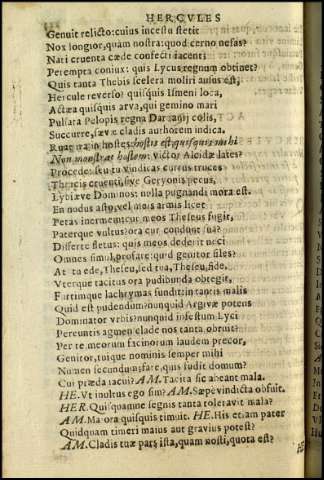 HERCVLES
Genuit relicto: cuius incestu stetit
Nox longior, quam nostra: quod cerno nefas?
Nati cruenta cæde confecti iacent:
Perempta coniux: quis Lycus regnum obtinet?
Quis tanta Thebis scelera moliri ausus est,
Hercule reverso? quisquis Ismeni loca,
Actæa quisquis arva, qui gemino mari
Pulsata Pelopis regna Dardanij colis,
Succurre, sævæ cladis authorem indica.
Ruat ira in hostes: hostis est, quisquis mihi
Non monstras hostem: victor Alcidæ lates?
Procede: seu tu vindicas currus truces
Thracis cruenti, sive Geryonis pecus,
Lybiæve Dominos: nulla pugnandi mora est.
En nudus asto, vel meis armis licet
Petas inermem: cur meos Theseus fugit,
Paterque vultus? ora cur condunt sua?
Differte fletus: quis meos dederit neci
Omnes simul, profare: quid genitor siles?
At tu ede, Theseu, sed tua, Theseu, fide.
Vterque tacitus ora pudibunda obtegit,
Furtimque lachrymas fundit: in tantis malis
Quid est pudendum? nunquid Argivæ potens
Dominator vrbis? nunquid infestum Lyci
Pereuntis agmen clade nos tanta obruit?
Per te meorum facinorum laudem precor,
Genitor, tuique nominis semper mihi
Numen secundum, fare, quis fudit domum?
Cui præda iacui? AM. Tacita sic abeant mala.
HE. Vt inultus ego sim? AM. Sæpè vindicta obfuit.
HER. Quisquamne segnis tanta toleravit mala?
AM. Maiora quisquis timuit. HE. His etiam pater
Quidquam timeri maius aut gravius potest?
AM. Cladis tuæ pars ista, quam nosti, quota est?